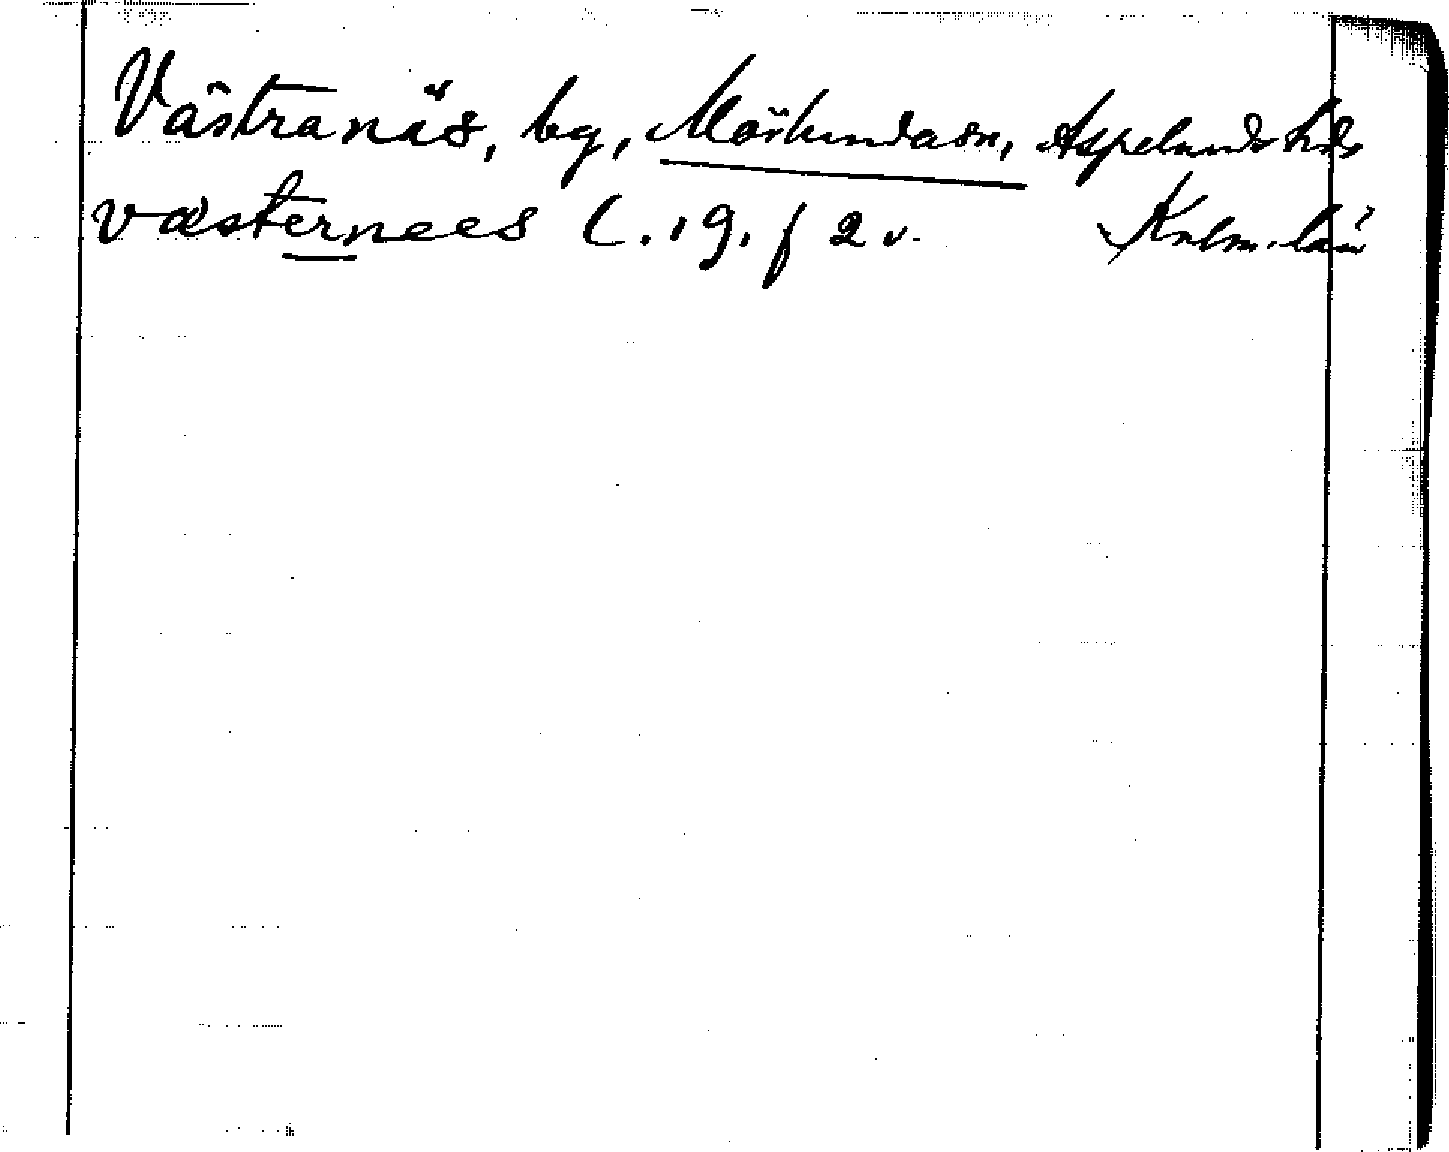 Västranäs, by, Mörlunda sn, Aspelands hds
væsternees C. 19. f 2 v. Kalm. län